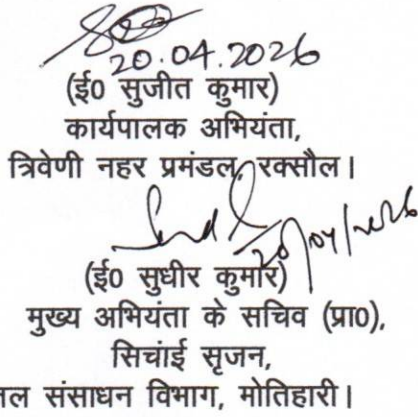 20.04.2026
(ई0 सुजीत कुमार)
कार्यपालक अभियंता,
त्रिवेणी नहर प्रमंडल, रक्सौल।
20/04/2026
(ई0 सुधीर कुमार)
मुख्य अभियंता के सचिव (प्रा0),
सिचांई सृजन,
संसाधन विभाग, मोतिहारी।